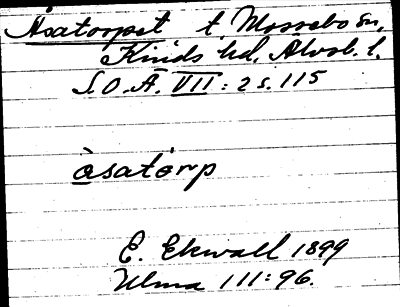 Åsatorpet t. Mossebo sn,
Kinds hd, Älvsb. l.
S.O.Ä. VII: 2 s. 115
åsatorp
E. Ekwall 1899
Ulma 111:96.